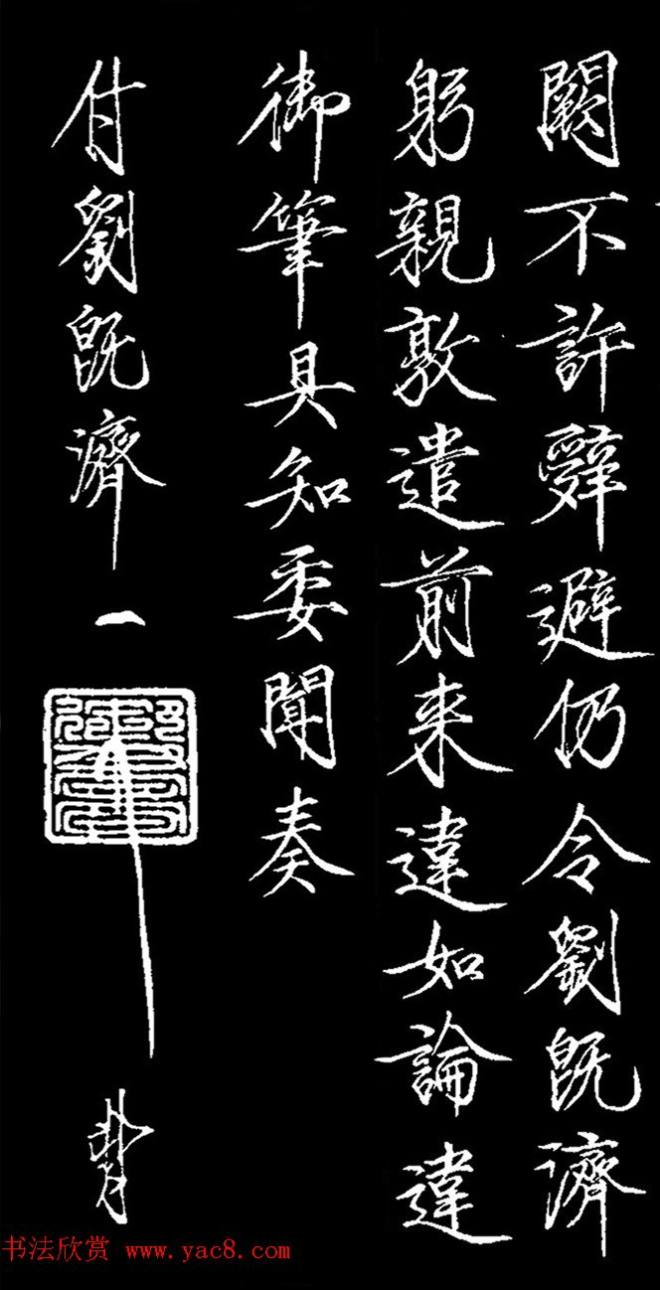 闕不許辤避仍令劉既濟
躬親敦遣前来違如論違
御筆具知委聞奏
付劉既濟
书法欣赏 www.yac8.com